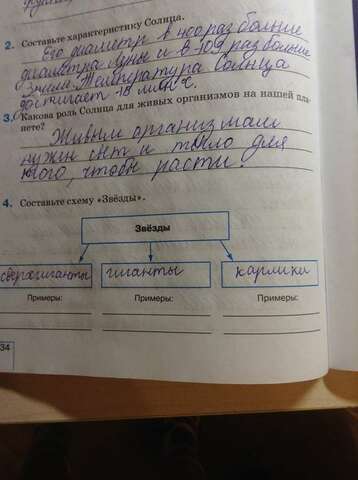 2. Составьте характеристику Солнца.
Его диаметр в 400 раз больше
диаметра Луны и в 109 раз больше
Земли. Температура Солнца
достигает 15 млн °C.
3. Какова роль Солнца для живых организмов на нашей пла-
нете?
Живым организмам
нужен свет и тепло для
того, чтобы расти.
4. Составьте схему «Звёзды».
Звёзды
сверхгиганты гиганты карлики
Примеры: Примеры: Примеры:
34